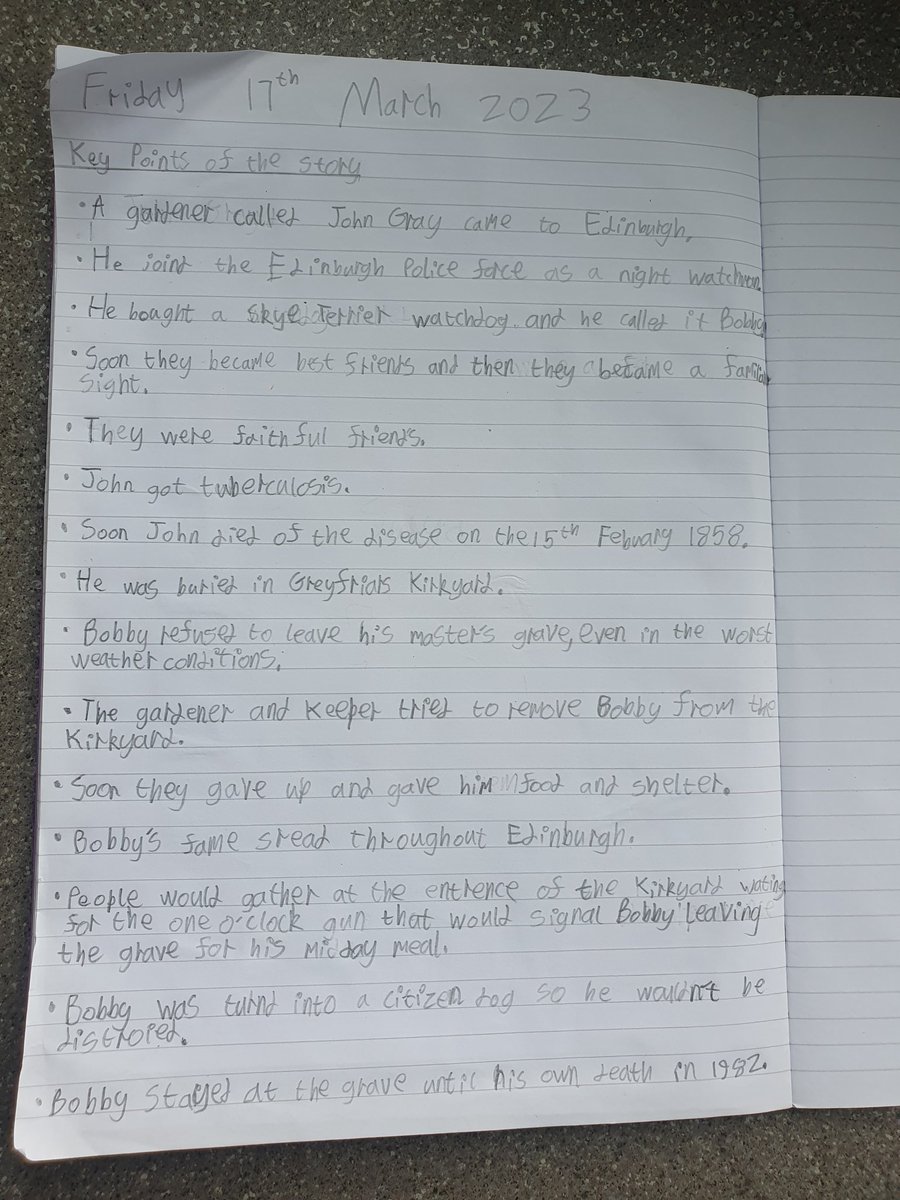 Friday 17th March 2023
Key Points of the story
• A gardener called John Gray came to Edinburgh.
• He joind the Edinburgh Police force as a night watchman
• He bought a Skye Terrier watchdog and he called it Bobby
• Soon they became best friends and then they became a familiar
sight.
• They were faithful friends.
• John got tuberculosis.
• Soon John died of the disease on the 15th Febuary 1858.
• He was buried in Greyfriars Kirkyard.
• Bobby refused to leave his master's grave, even in the worst
weather conditions.
• The gardener and keeper tried to remove Bobby from the
Kirkyard.
• Soon they gave up and gave him food and shelter.
• Bobby's fame sread throughout Edinburgh.
• People would gather at the entrence of the Kirkyard wating
for the one o'clock gun that would signal Bobby leaving
the grave for his midday meal.
• Bobby was turnd into a citizen dog so he wouldn't be
distroped.
• Bobby stayed at the grave until his own death in 1982.